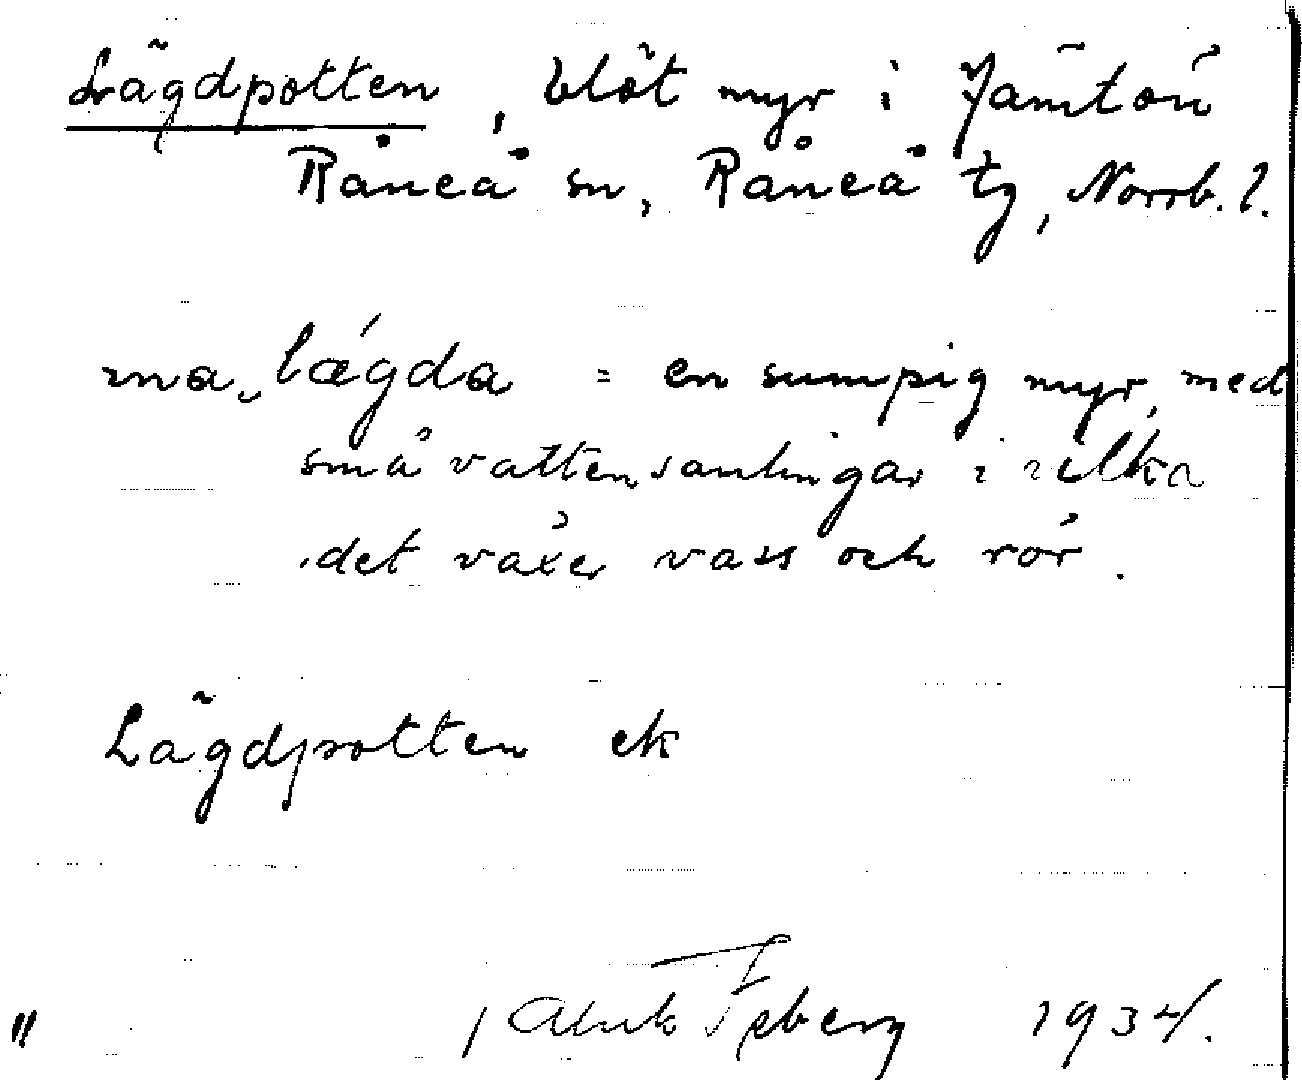 Lägdpotten, blöt myr i Jämtön
Råneå sn, Råneå tg, Norrb. l.
lǽgda = en sumpig myr, med
små vattensamlingar i vilka
det växer vass och rör.
Lägdpotten ek
Isberg 1934.